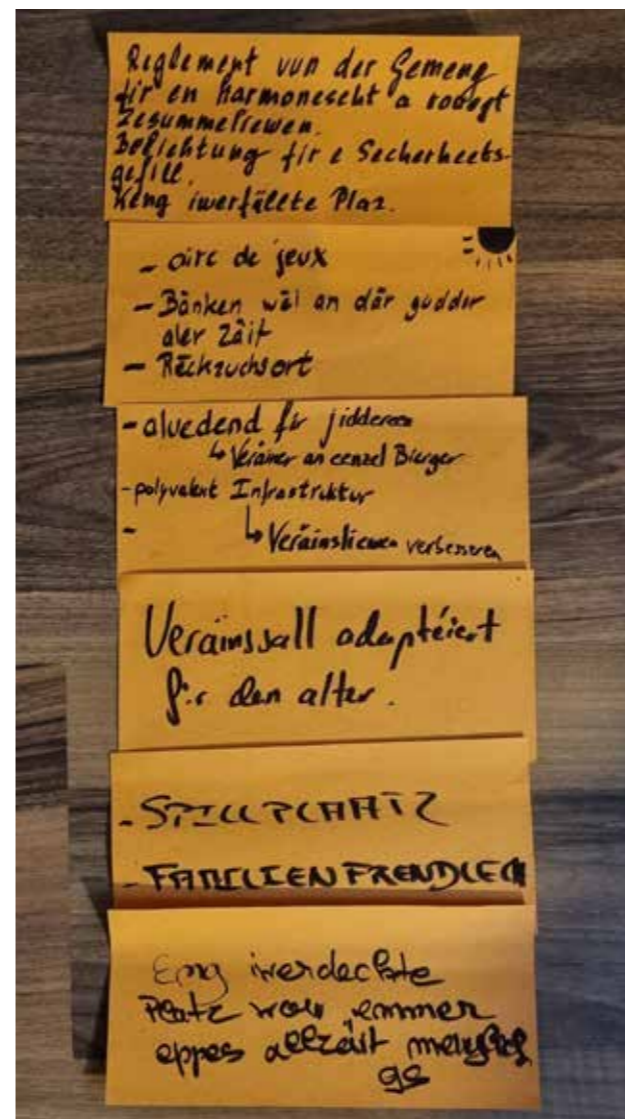 Reglement vun der Gemeng
fir en harmonescht a roueg​t
Zesummeliewen.
Beliichtung fir e Secherheets-
gefill.
Keng iwerfällte Plaz.
- aire de jeux
- Bänken wäi an där gudder
aler Zäit
- Réckzuchsort
- aluedend fir jiddereen
↳ Veräiner an eenzel Bierger
- polyvalent Infrastruktur
-
↳ Veräinsliewen verbesseren
Veräinssall adaptéiert
fir den alter.
- SPILLPLAATZ
- FAMILIENFRENDLECH
Eng iwerdeckte
Platz wou emmer
eppes allzäit